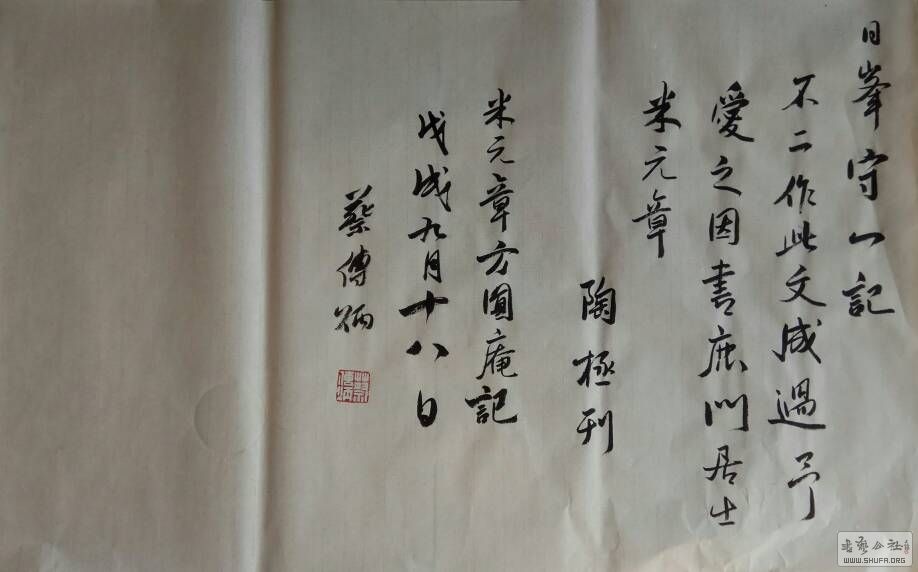 日峯守一記
不二作此文成過予
愛之因書鹿門居士
米元章
陶極刊
米元章方圓庵記
戊戌九月十八日
蔡傳炳
蔡傳炳
書藝公社
WWW.SHUFA.ORG